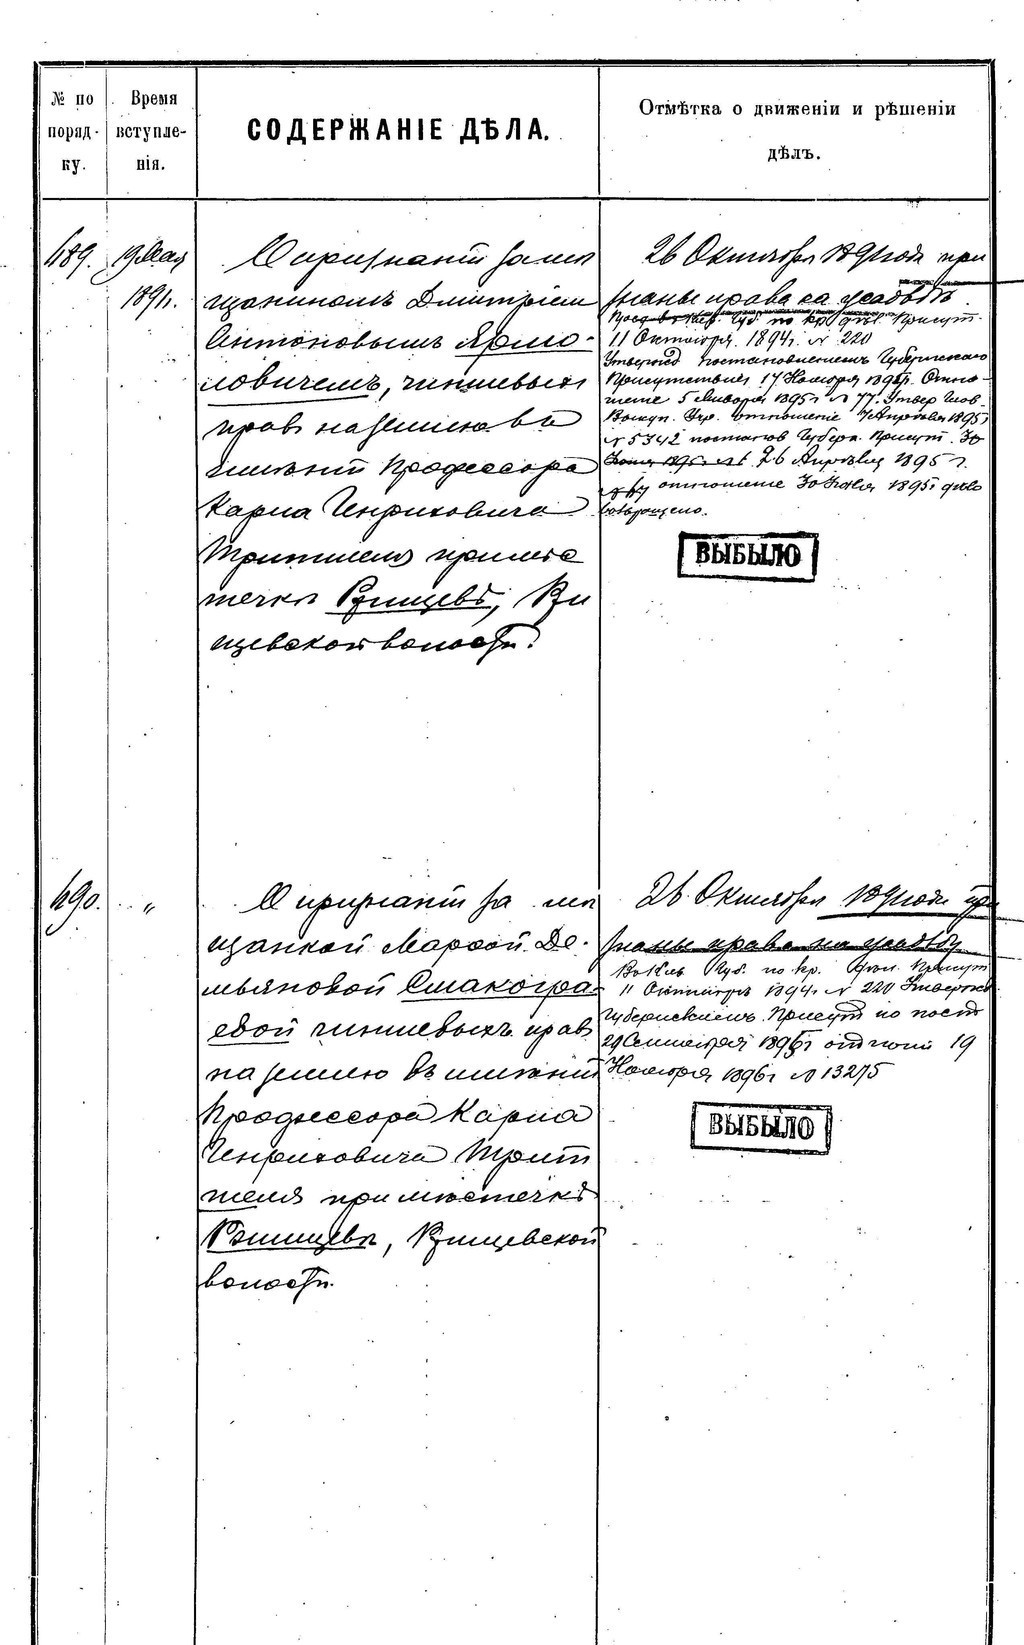 № по порядку.
Время вступленія.
СОДЕРЖАНІЕ ДѢЛА.
Отмѣтка о движеніи и рѣшеніи дѣлъ.
489. 19 Мая 1891г.
О признаніи за мѣ
щаниномъ Дмитріем
Антоновымъ Ярмо-
ловичемъ, чиншевыхъ
правъ на землю въ
имѣніи Профессора
Карла Генриховича
Тритшеля при мѣсте
течкѣ Ржищевѣ, Ржи
щевской волости.
26 Октября 1891 года при
знаны права на усадьбу.
Губ. по кр. дѣл. Присут.
11 Октября 1894г. № 220
Утвержд постановленіемъ Губернскаго
Присутствія 17 Ноября 189 г. Отно-
шеніе 5 Января 1895г № 77. Утвер Глов.
Выкуп. Учр. отношеніе 7 Апрѣля 1895г
№ 5342 постанов Губерн. Присут. 
26 Апрѣля 1895г.
отношеніе 30 1895г дѣло
возвращено.
ВЫБЫЛО
490. "
О признаніи за мѣ
щанкой Марѳой Де-
мьяновой Смакогра-
евой чиншевыхъ правъ
на землю въ имѣніи
Профессора Карла
Генриховича Трит
шеля при мѣстечкѣ
Ржищевѣ, Ржищевской
волости.
26 Октября 1891 года при
знаны права на усадьбу
Губ. по кр. дѣл. Присут
11 Октября 1894г. № 220 Утвержд
Губернскимъ Присут по пост
29 Сентября 1896г отднош 19
Ноября 1896г № 13275
ВЫБЫЛО